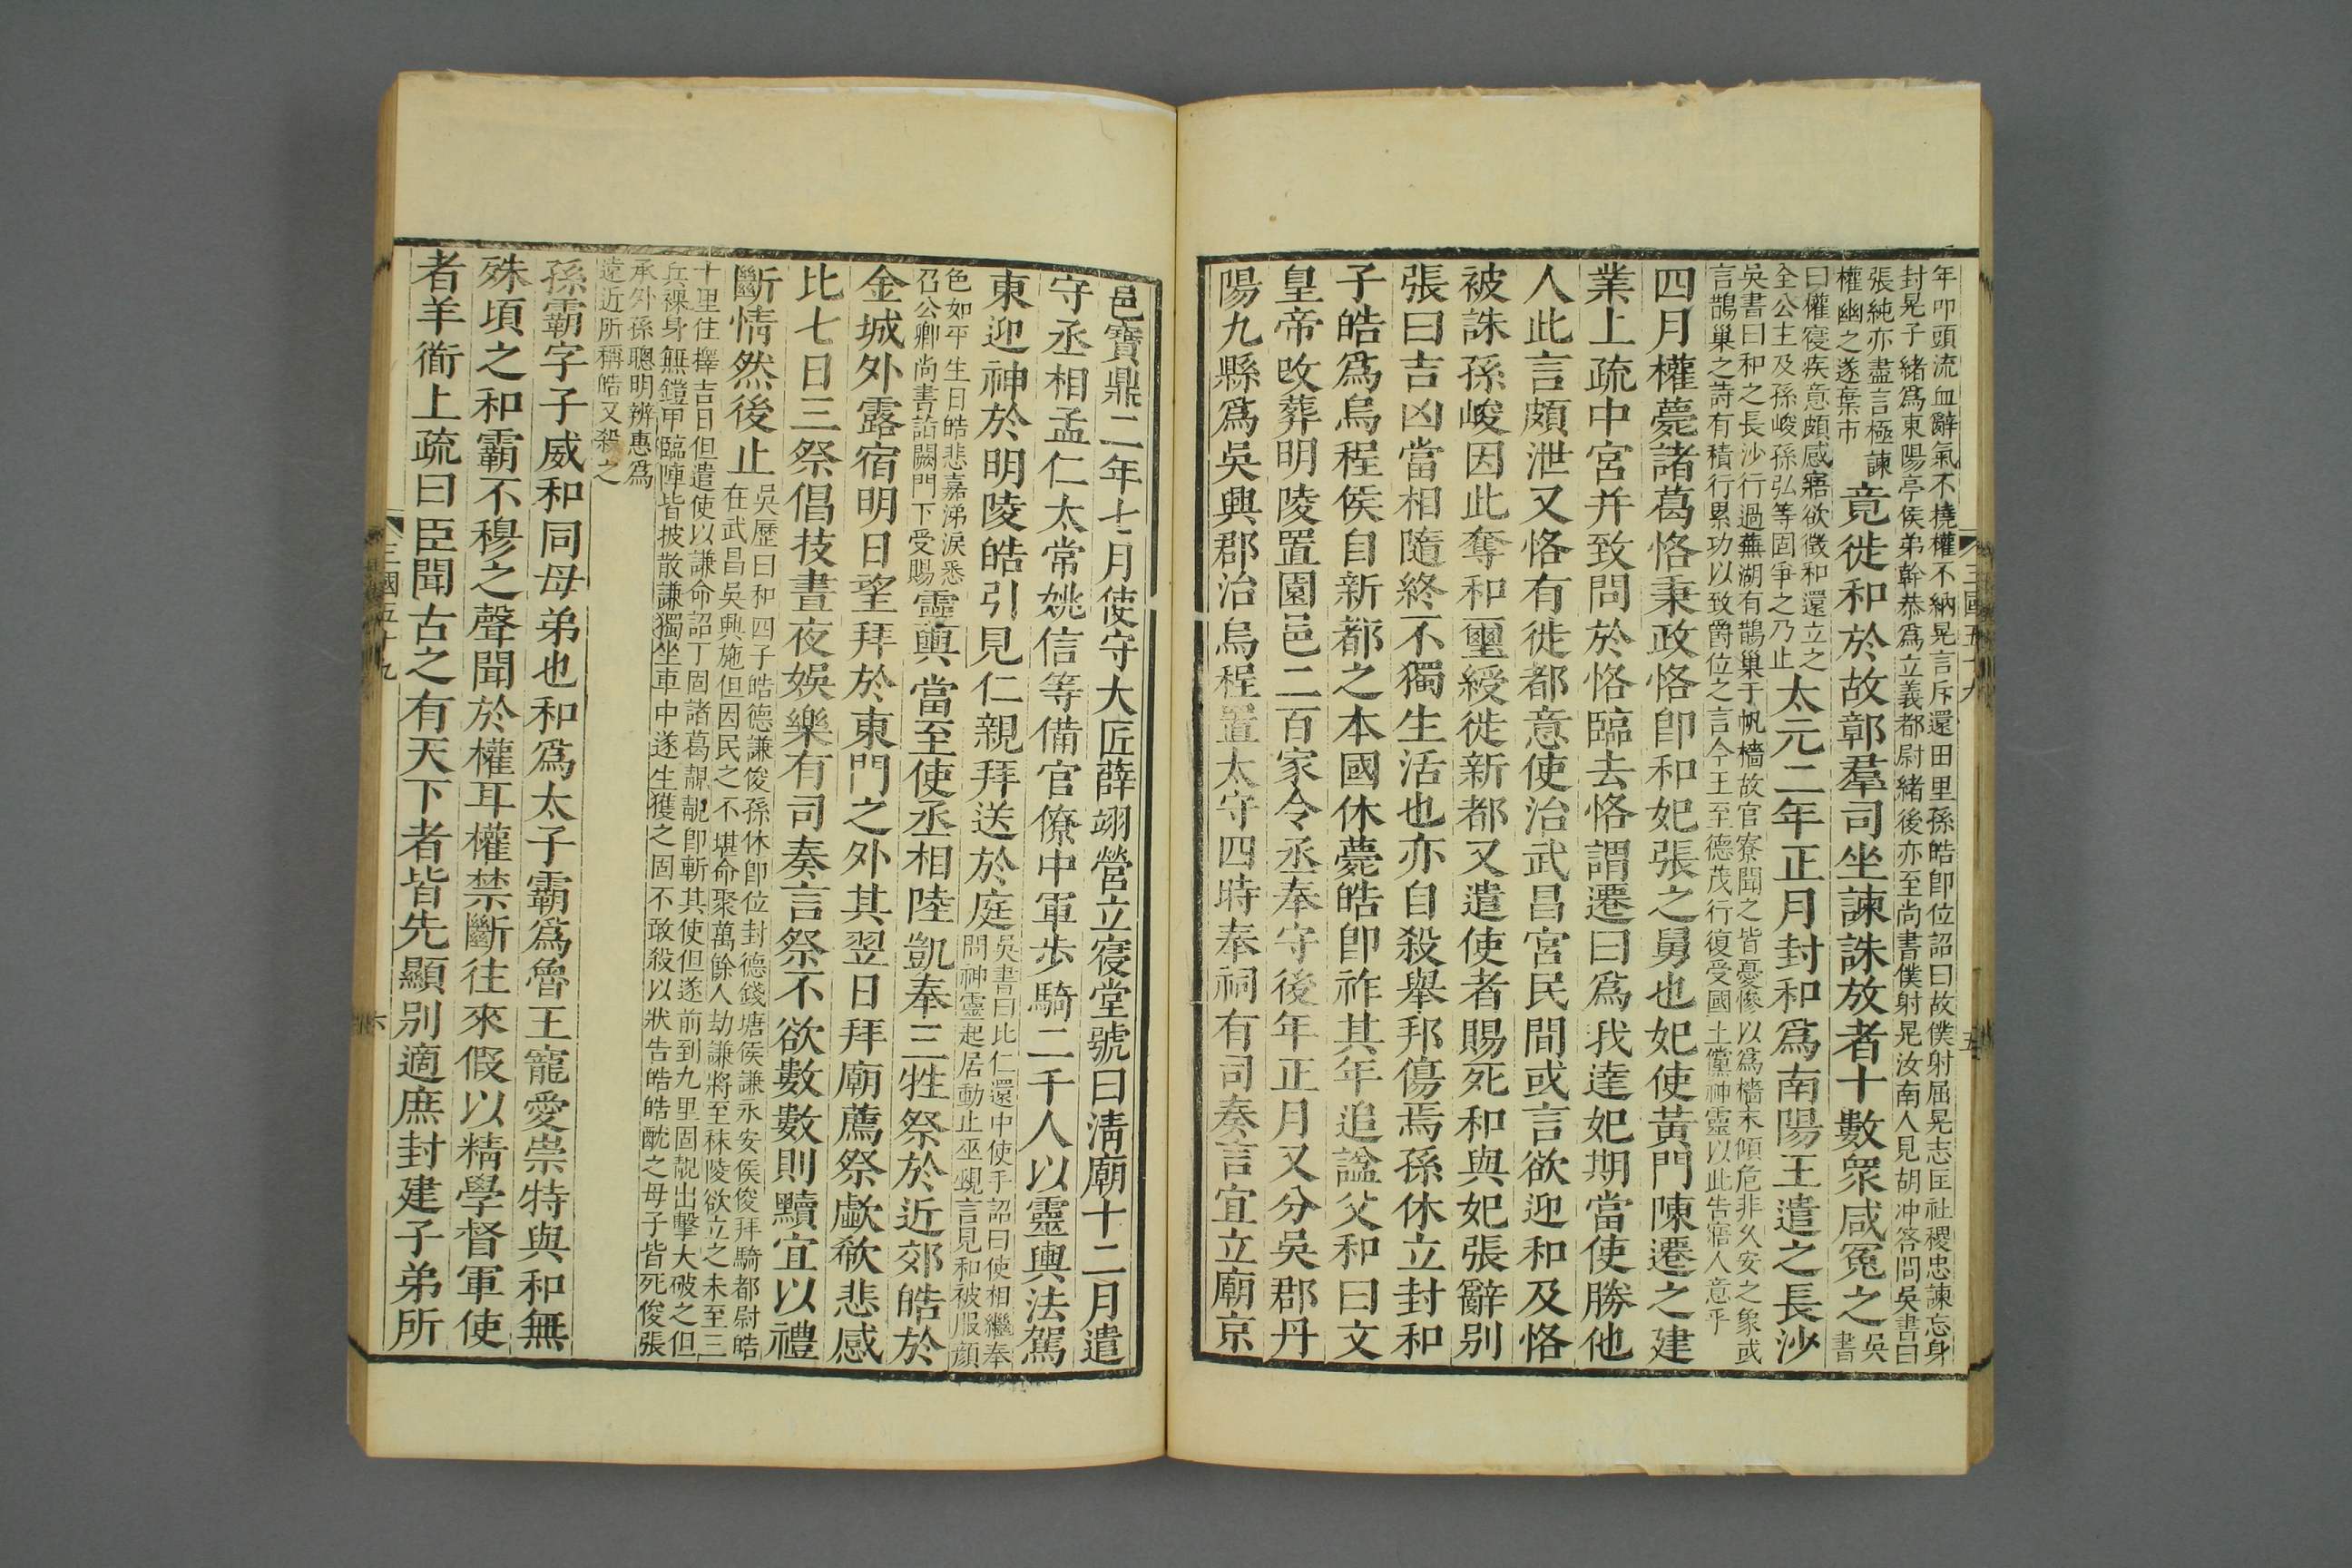 年叩頭流血辭氣不撓權不納晃言斥還田里孫皓卽位詔曰故僕射屈晃志匡社稷忠諫忘身
封晃子緒爲東陽亭侯弟幹恭爲立義都尉緒後亦至尚書僕射晃汝南人見胡沖答問吳書曰
張純亦盡言極諫
權幽之遂棄市
竟徙和於故鄣羣司坐諫誅放者十數衆咸冤之
吳書
曰權寢疾意頗感寤欲徵和還立之
全公主及孫峻孫弘等固爭之乃止
太元二年正月封和爲南陽王遣之長沙
吳書曰和之長沙行過蕪湖有鵲巢于帆檣故官寮聞之皆憂慘以爲檣末傾危非久安之象或
言鵲巢之詩有積行累功以致爵位之言今王至德茂行復受國土儻神靈以此告寤人意乎
四月權薨諸葛恪秉政恪卽和妃張之舅也妃使黃門陳遷之建
業上疏中宮并致問於恪臨去恪謂遷曰爲我達妃期當使勝他
人此言頗泄又恪有徙都意使治武昌宮民間或言欲迎和及恪
被誅孫峻因此奪和璽綬徙新都又遣使者賜死和與妃張辭別
張曰吉凶當相隨終不獨生活也亦自殺舉邦傷焉孫休立封和
子皓爲烏程侯自新都之本國休薨皓卽祚其年追諡父和曰文
皇帝改葬明陵置園邑二百家令丞奉守後年正月又分吳郡丹
陽九縣爲吳興郡治烏程置太守四時奉祠有司奏言宜立廟京
三國五十九
五
邑寶鼎二年七月使守大匠薛珝營立寢堂號曰清廟十二月遣
守丞相孟仁太常姚信等備官僚中軍步騎二千人以靈輿法駕
東迎神於明陵皓引見仁親拜送於庭
吳書曰比仁還中使手詔曰使相繼奉
問神靈起居動止巫覡言見和被服顏
色如平生日皓悲嘉涕淚悉
召公卿尚書詣闕門下受賜
靈輿當至使丞相陸凱奉三牲祭於近郊皓於
金城外露宿明日望拜於東門之外其翌日拜廟薦祭歔欷悲感
比七日三祭倡技晝夜娛樂有司奏言祭不欲數數則黷宜以禮
斷情然後止
吳歷曰和四子皓德謙俊孫休卽位封德錢塘侯謙永安侯俊拜騎都尉皓
在武昌吳興施但因民之不堪命聚萬餘人劫謙將至秣陵欲立之未至三
十里住擇吉日但遣使以謙命詔丁固諸葛靚靚卽斬其使但遂前到九里固靚出擊大破之但
兵裸身無鎧甲臨陣皆披散謙獨坐車中遂生獲之固不敢殺以狀告皓皓酖之母子皆死俊張
承外孫聰明辨惠爲
遠近所稱皓又殺之
孫霸字子威和同母弟也和爲太子霸爲魯王寵愛崇特與和無
殊頃之和霸不穆之聲聞於權耳權禁斷往來假以精學督軍使
者羊衜上疏曰臣聞古之有天下者皆先顯別適庶封建子弟所
三國五十九
六